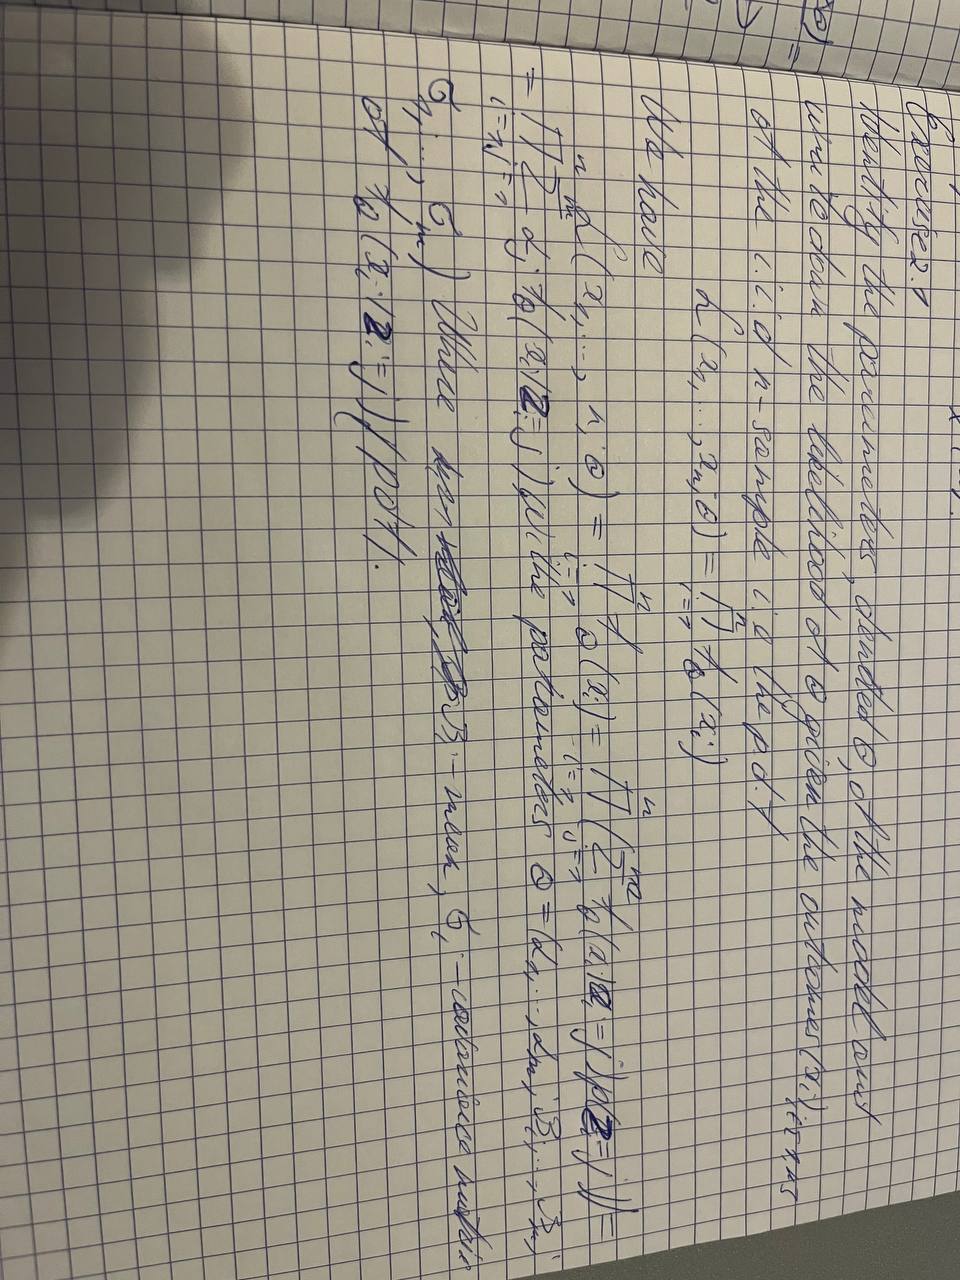 Exercise 2.1
Identify the parameters, denoted θ, of the model and
write down the likelihood of θ given the outcomes (x_i)_{i∈[1,n]}
of the i.i.d n-sample i.e the p.d.f
L(x_1,...,x_n;θ) = ∏_{i=1}^{n} f_θ(x_i)
We have
L(x_1,..., n;θ) = ∏_{i=1}^{n} f_θ(x_i) = ∏_{i=1}^{n} (∑_{j=1}^{m} f_θ(x_i|z_i=j)p(z_i=j)) =
= ∏_{i=1}^{n} ∑_{j=1}^{m} α_j f_θ(x_i|z_i=j), withe parameters θ = (α_1,...,α_m; β_1,...,β_m;
σ_1,...,σ_m) Where β_i - mean, σ_i - covariance matrix
of f_θ(x_i|z_i=j) (pdf).